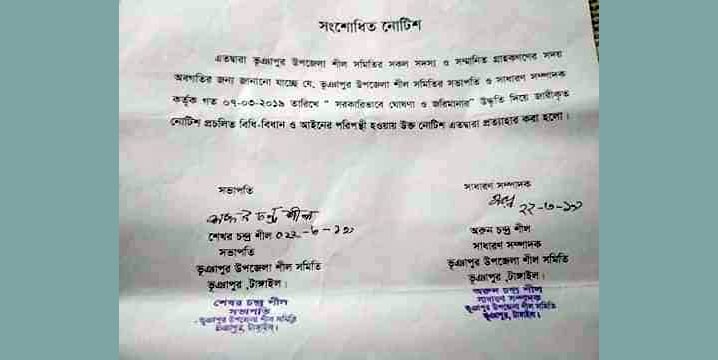 সংশোধিত নোটিশ
এতদ্বারা ভূঞাপুর উপজেলা শীল সমিতির সকল সদস্য ও সম্মানিত গ্রাহকগণের সদয়
অবগতির জন্য জানানো যাচ্ছে যে, ভূঞাপুর উপজেলা শীল সমিতির সভাপতি ও সাধারণ সম্পাদক
কর্তৃক গত ০৭-০৩-২০১৯ তারিখে " সরকারিভাবে ঘোষণা ও জরিমানার" উদ্ধৃতি দিয়ে জারীকৃত
নোটিশ প্রচলিত বিধি-বিধান ও আইনের পরিপন্থী হওয়ায় উক্ত নোটিশ এতদ্বারা প্রত্যাহার করা হলো।
সভাপতি
সাধারণ সম্পাদক
চন্দ্র শীল
২২-৩-১৯
শেখর চন্দ্র শীল
অরুন চন্দ্র শীল
সভাপতি
সাধারণ সম্পাদক
ভূঞাপুর উপজেলা শীল সমিতি
ভূঞাপুর উপজেলা শীল সমিতি
ভূঞাপুর ,টাঙ্গাইল।
ভূঞাপুর ,টাঙ্গাইল।
শেখর চন্দ্র শীল
অরুন চন্দ্র শীল
সভাপতি
সাধারণ সম্পাদক
ভূঞাপুর উপজেলা শীল সমিতি
ভূঞাপুর উপজেলা শীল সমিতি
ভূঞাপুর, টাঙ্গাইল।
ভূঞাপুর, টাঙ্গাইল।